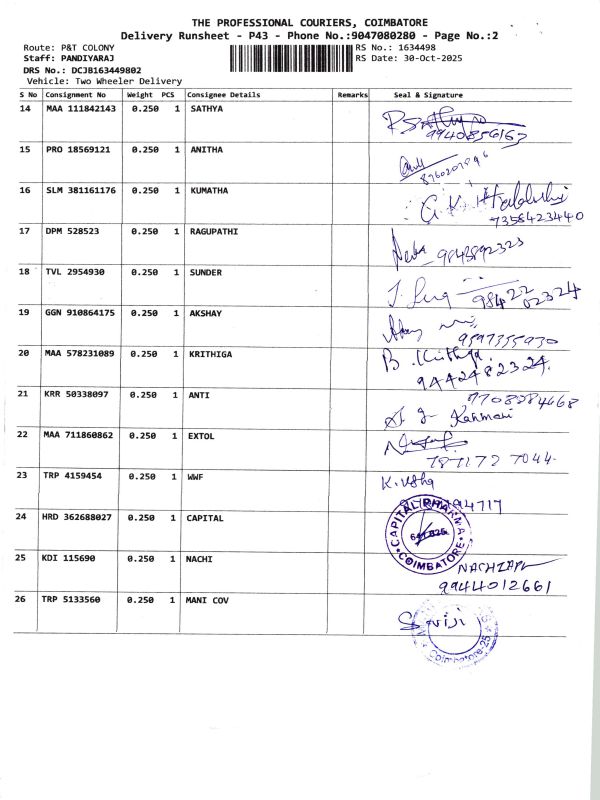 THE PROFESSIONAL COURIERS, COIMBATORE
Delivery Runsheet - P43 - Phone No.:9047080280 - Page No.:2
Route: P&T COLONY RS No.: 1634498
Staff: PANDIYARAJ RS Date: 30-Oct-2025
DRS No.: DCJB163449802
Vehicle: Two Wheeler Delivery
S No Consignment No Weight PCS Consignee Details Remarks Seal & Signature
14 MAA 111842143 0.250 1 SATHYA
9940856163
15 PRO 18569121 0.250 1 ANITHA
16 SLM 381161176 0.250 1 KUMATHA
7358423440
17 DPM 528523 0.250 1 RAGUPATHI
9843892323
18 TVL 2954930 0.250 1 SUNDER
98422 02324
19 GGN 910864175 0.250 1 AKSHAY
9597355930
20 MAA 578231089 0.250 1 KRITHIGA B. Krithiga
9442482324
21 KRR 50338097 0.250 1 ANTI 7708384668
Kanmani
22 MAA 711860862 0.250 1 EXTOL
23 TRP 4159454 0.250 1 WWF K. Usha
24 HRD 362688027 0.250 1 CAPITAL CAPITAL PHARMA
COIMBATORE
25 KDI 115690 0.250 1 NACHI
9944012661
26 TRP 5133560 0.250 1 MANI COV
Coimbatore-25